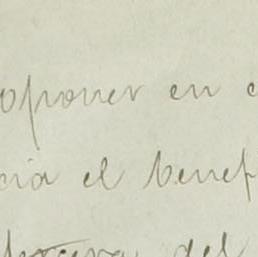 oponer en
cia el benef
del